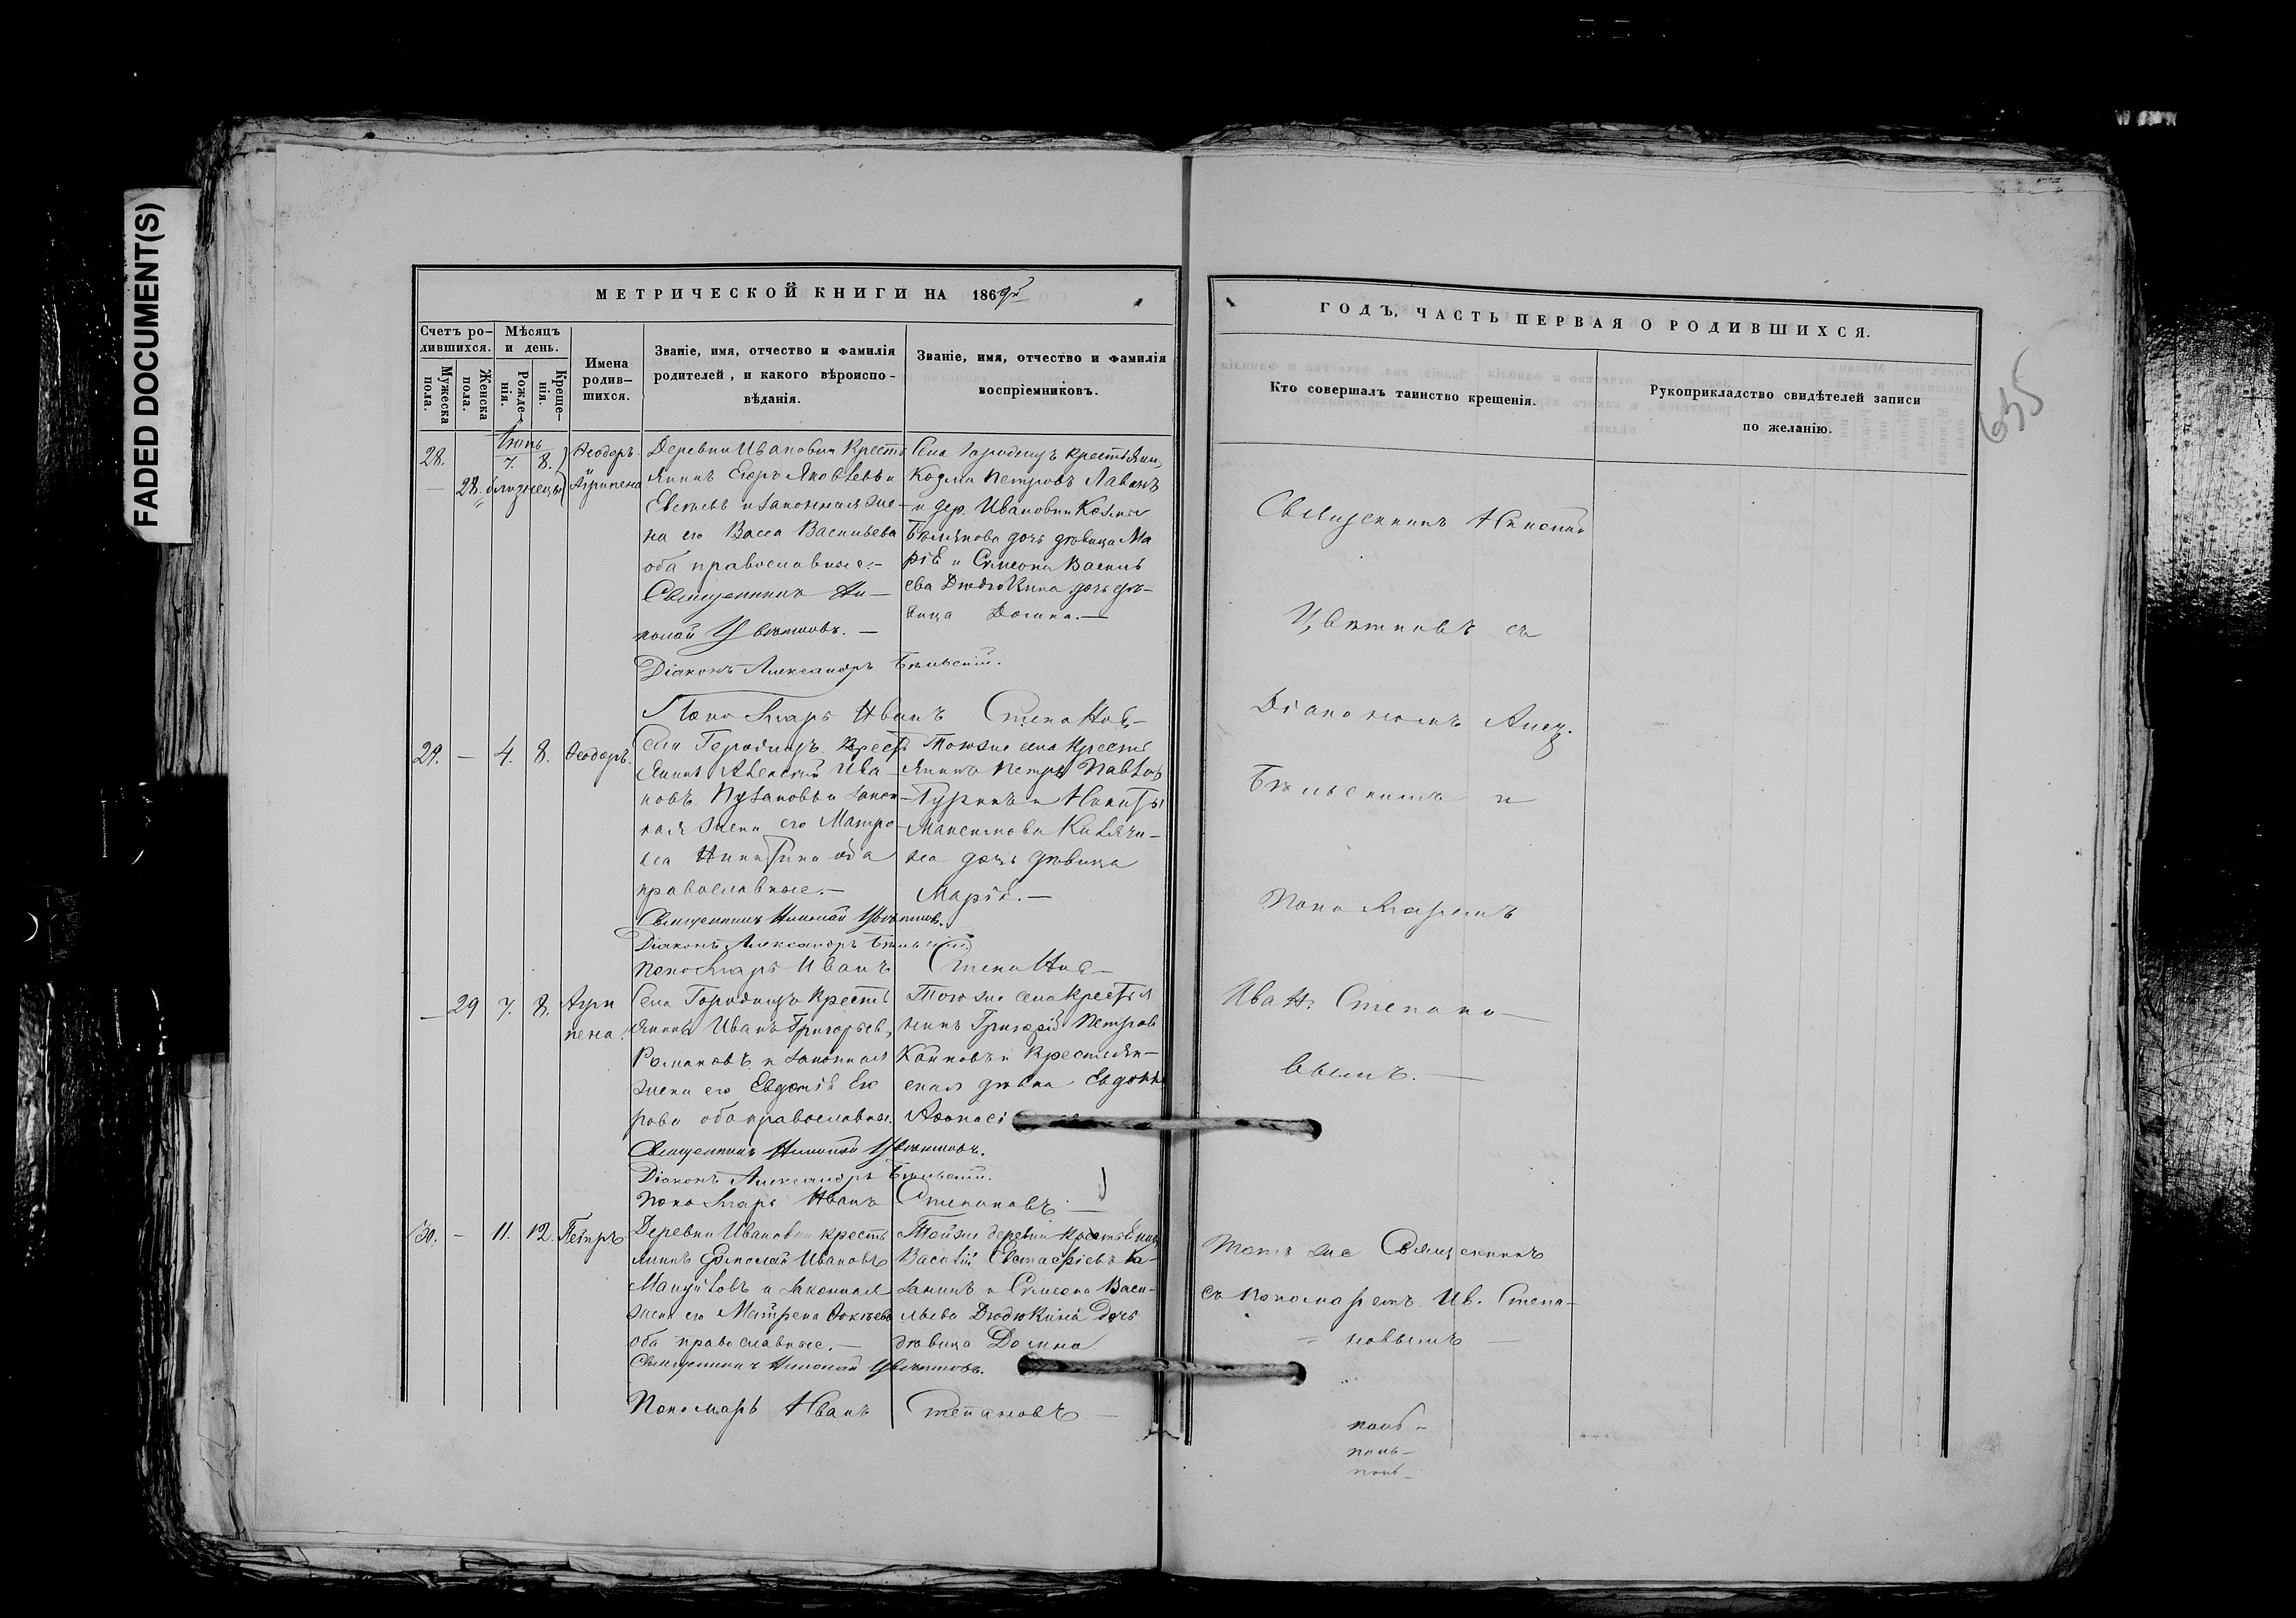 FADED DOCUMENT(S)
МЕТРИЧЕСКОЙ КНИГИ НА 1869й
Счетъ ро-
дившихся.
Мужеска
пола.
Женска
пола.
Мѣсяцъ
и день.
Рожде-
нія.
Креще-
нія.
Имена
родив-
шихся.
Званіе, имя, отчество и фамилія
родителей, и какого вѣроиспо-
вѣданія.
Званіе, имя, отчество и фамилія
воспріемниковъ.
Іюнь
28. 7. 8. Ѳеодоръ
и
— 28. близнецы Агрипена
Деревни Ивановки кресть
янинъ Егоръ Яковлевъ
и законная же-
на его Васса Васильева
оба православные.—
Священникъ Ни-
колай Цвѣтковъ.—
Діаконъ Александръ Бѣльскій.
Пономарь Иванъ Степановъ
Села Городищъ крестьянинъ
Козма Петровъ
и дер. Ивановки
дочь дѣвица Ма
рія и Симеона Василь
ева Дюдюкина дочь дѣ-
вица Домна.—
29. — 4. 8. Ѳеодоръ.
Села Городищъ крестъ
янинъ Алексей Ива-
новъ и закон-
ная жена его Матро
на Никитина оба
православные.—
Священникъ Николай Цвѣтковъ.
Діаконъ Александръ Бѣльскій.
Пономарь Иванъ Степановъ
Тогоже села кресть
янинъ Петръ Павловъ
и Никиты
Максимова
на дочь дѣвица
Марія.—
— 29 7. 8. Агри
пена.
Села Городищъ кресть
янинъ Иванъ Григорьев,
Романовъ и законная
жена его Евдокія Его
рова оба православные.
Священникъ Николай Цвѣтковъ.
Діаконъ Александръ Бѣльскій.
Пономарь Иванъ Степановъ.—
Тогоже села крестья
нинъ Григорій Петровъ
и крестьян-
ская дѣвка
30. — 11. 12. Петръ
Деревни Ивановки кресть
янинъ Ермолай Ивановъ
и законная
жена его Матрена
оба православные.—
Священникъ Николай Цвѣтковъ.
Пономарь Иванъ Степановъ —
Тойже деревни крестьянинъ
Василій
и Симеона Васи-
льева Дюдюкина дочь
дѣвица Домна
ГОДЪ, ЧАСТЬ ПЕРВАЯ О РОДИВШИХСЯ.
635
Кто совершалъ таинство крещенія.
Рукоприкладство свидѣтелей записи
по желанію.
Священникъ Николай
Цвѣтковъ съ
Діакономъ Алек.
Бѣльскимъ и
Пономаремъ
Иван. Степано—
вымъ.—
Тотъ же Священникъ
съ пономаремъ Ив. Степа-
новымъ —